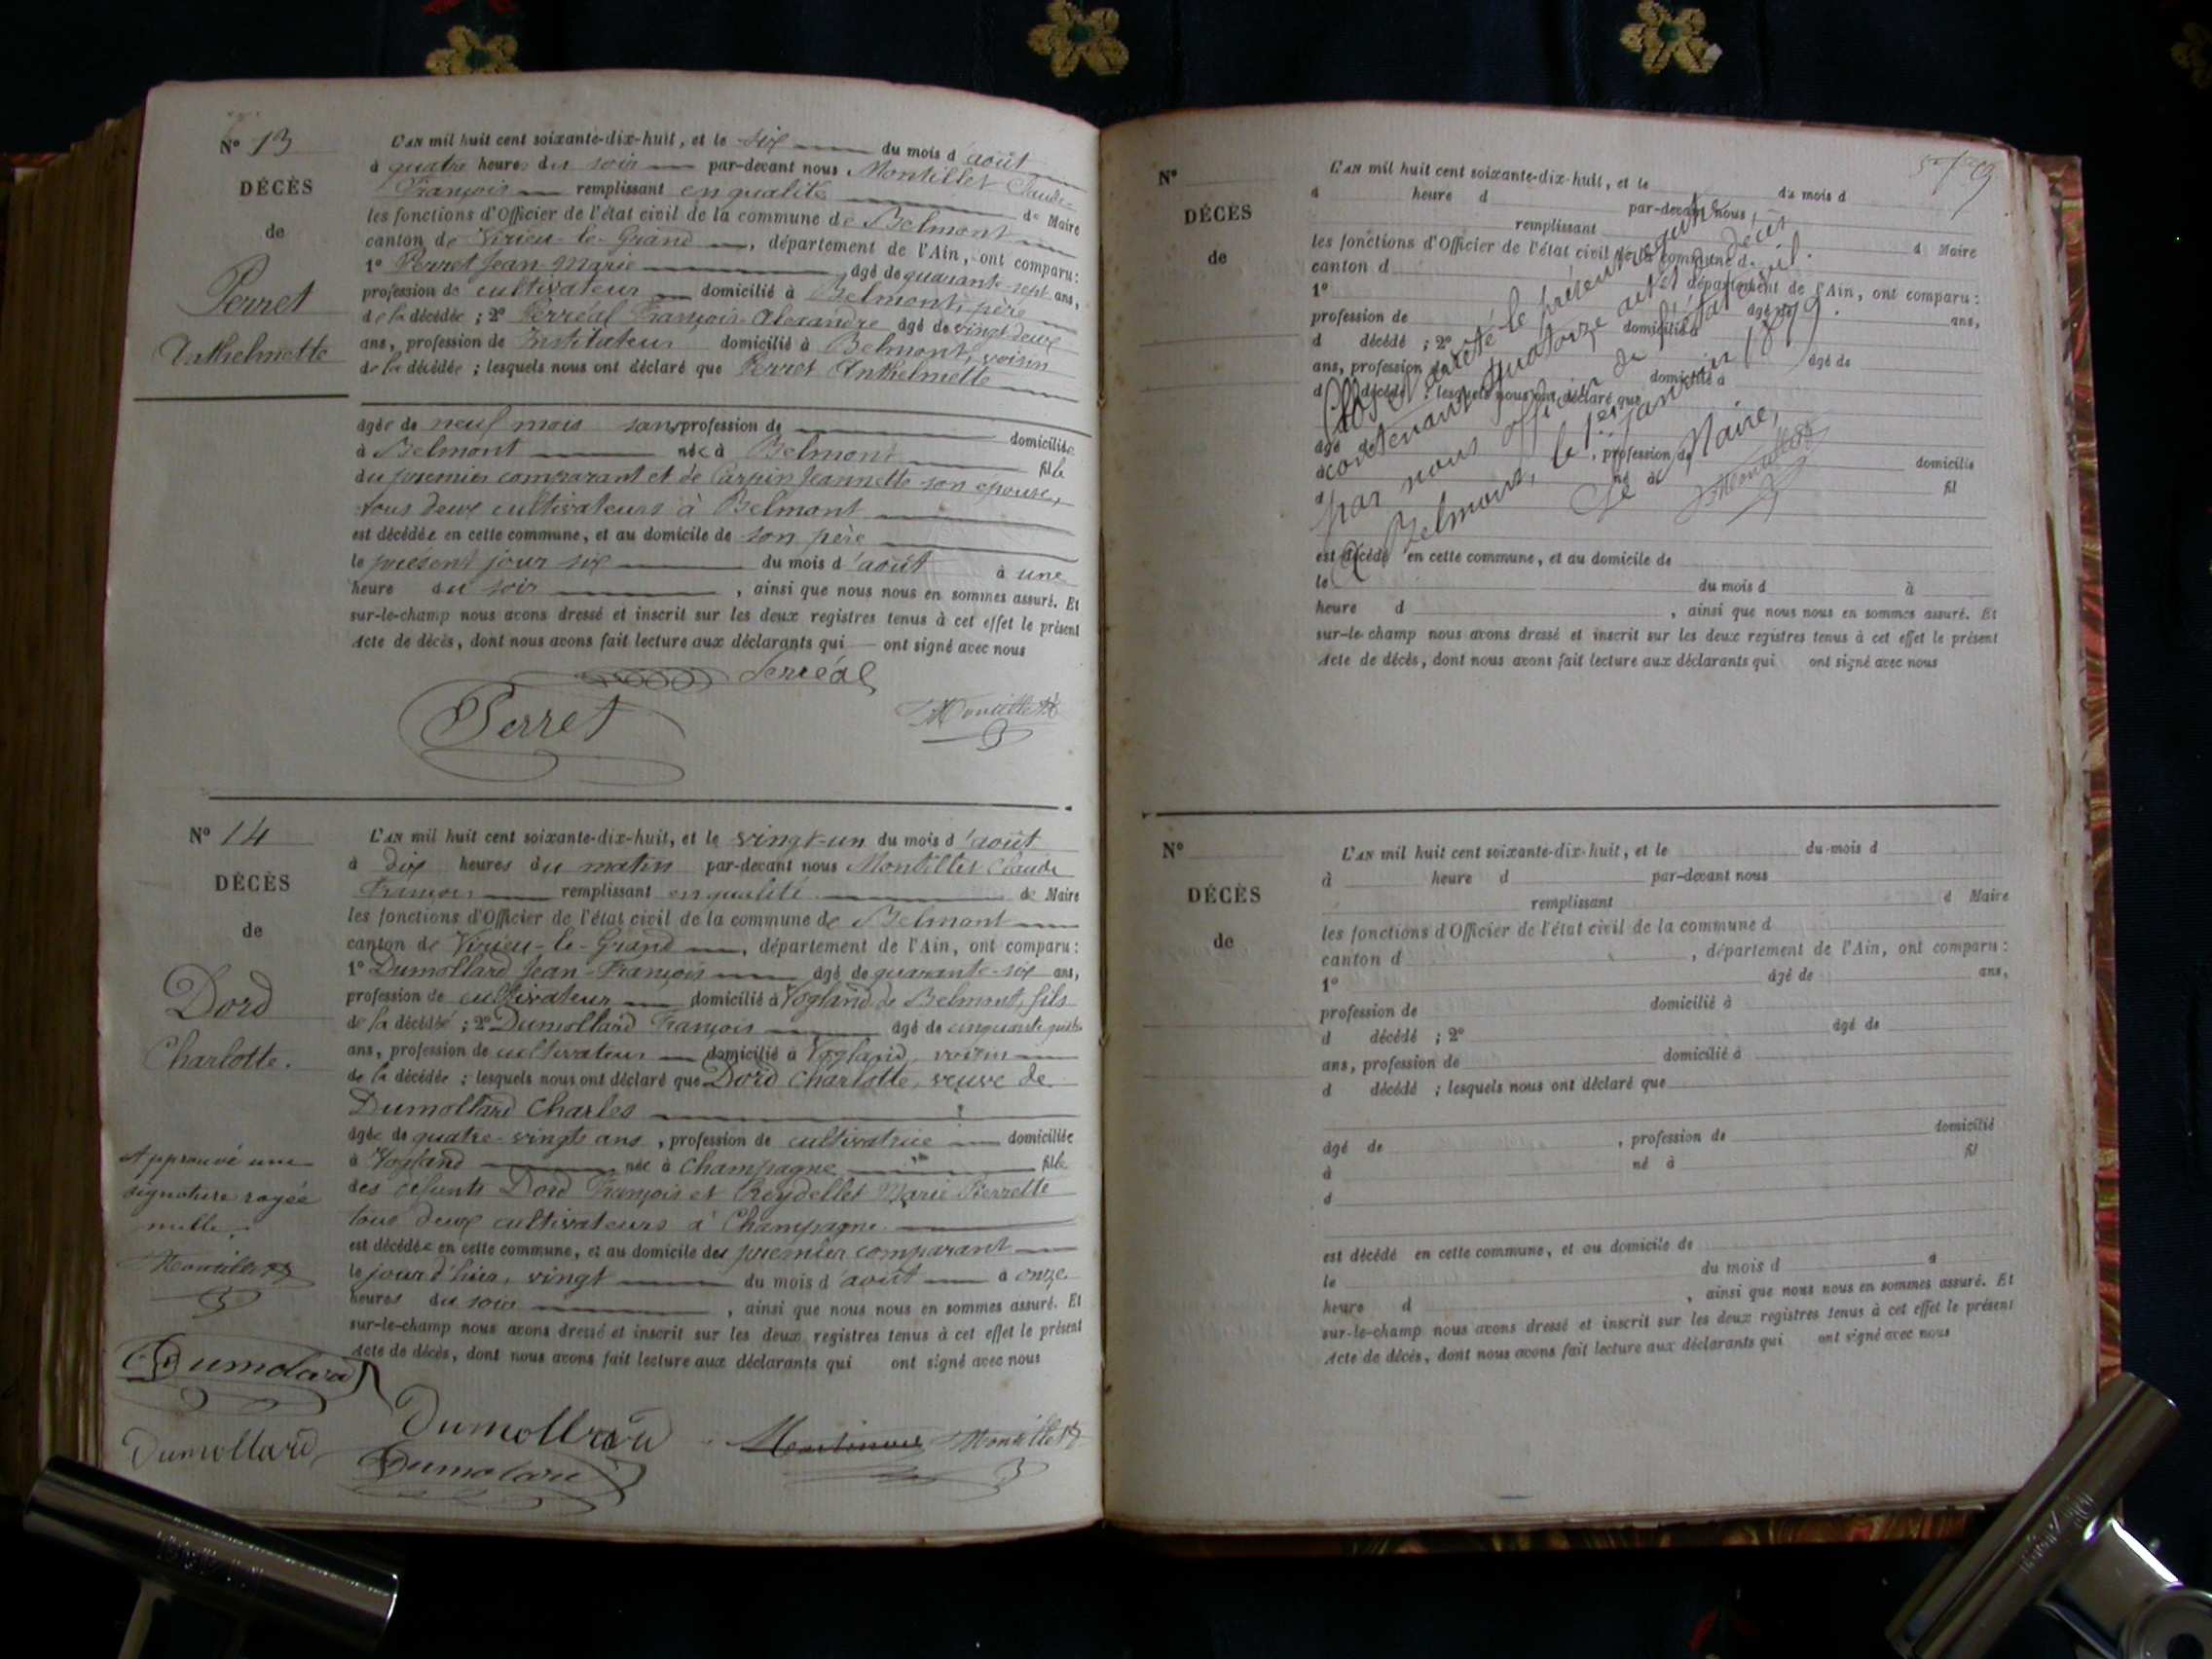 N° 13
DÉCÈS
de
Perret
Anthelmette
L'AN mil huit cent soixante-dix-huit, et le six du mois d'août
à quatre heures du soir par-devant nous Montillet Claude
François remplissant en qualité de Maire
les fonctions d'Officier de l'état civil de la commune de Belmont
canton de Virieu-le-Grand, département de l'Ain, ont comparu:
1° Perret Jean-Marie âgé de quarante-sept ans,
profession de cultivateur domicilié à Belmont, père
de la décédée; 2° Ferréal François Alexandre âgé de vingt-deux
ans, profession de Instituteur domicilié à Belmont, voisin
de la décédée; lesquels nous ont déclaré que Perret Anthelmette
âgée de neuf mois sans profession de domiciliée
à Belmont née à Belmont fille
du premier comparant et de Carpin Jeannette son épouse,
tous deux cultivateurs à Belmont
est décédée en cette commune, et au domicile de son père
le présent jour six du mois d'août à une
heure du soir, ainsi que nous nous en sommes assuré. Et
sur-le-champ nous avons dressé et inscrit sur les deux registres tenus à cet effet le présent
Acte de décès, dont nous avons fait lecture aux déclarants qui ont signé avec nous
Ferréal
Perret
Montillet
N° 14
DÉCÈS
de
Dord
Charlotte.
L'AN mil huit cent soixante-dix-huit, et le vingt-un du mois d'août
à dix heures du matin par-devant nous Montillet Claude
François remplissant en qualité de Maire
les fonctions d'Officier de l'état civil de la commune de Belmont
canton de Virieu-le-Grand, département de l'Ain, ont comparu:
1° Dumollard Jean-François âgé de quarante-six ans,
profession de cultivateur domicilié à Vogland de Belmont, fils
de la décédée; 2° Dumollard François âgé de cinquante
ans, profession de cultivateur domicilié à Vogland, voisin
de la décédée; lesquels nous ont déclaré que Dord Charlotte, veuve de
Dumollard Charles
âgée de quatre-vingts ans, profession de cultivatrice domiciliée
à Vogland née à Champagne fille
des défunts Dord François et Reydellet Marie Pierrette
tous deux cultivateurs à Champagne
est décédée en cette commune, et au domicile du premier comparant
le jour d'hier, vingt du mois d'août à onze
heures du soir, ainsi que nous nous en sommes assuré. Et
sur-le-champ nous avons dressé et inscrit sur les deux registres tenus à cet effet le présent
Acte de décès, dont nous avons fait lecture aux déclarants qui ont signé avec nous
Approuvé une
signature rayée
nulle.
Montillet
Dumolard
Dumollard
Dumollard
Dumolard
Montillet
N°
DÉCÈS
de
L'AN mil huit cent soixante-dix-huit, et le du mois d
à heure d par-devant nous
remplissant d Maire
les fonctions d'Officier de l'état civil de la commune d
canton d, département de l'Ain, ont comparu:
1° âgé de ans,
profession de domicilié à
d décédé; 2° âgé de
ans, profession de domicilié à
d décédé; lesquels nous ont déclaré que
âgé de, profession de domicilié
à né à fil
d
est décédé en cette commune, et au domicile de
le du mois d à
heure d, ainsi que nous nous en sommes assuré. Et
sur-le-champ nous avons dressé et inscrit sur les deux registres tenus à cet effet le présent
Acte de décès, dont nous avons fait lecture aux déclarants qui ont signé avec nous
Clos et arrêté le présent registre
contenant quatorze actes de décès
par nous officier de l'état civil.
A Belmont, le 1er janvier 1879.
Le Maire,
Montillet
N°
DÉCÈS
de
L'AN mil huit cent soixante-dix-huit, et le du mois d
à heure d par-devant nous
remplissant d Maire
les fonctions d'Officier de l'état civil de la commune d
canton d, département de l'Ain, ont comparu:
1° âgé de ans,
profession de domicilié à
d décédé; 2° âgé de
ans, profession de domicilié à
d décédé; lesquels nous ont déclaré que
âgé de, profession de domicilié
à né à fil
d
est décédé en cette commune, et au domicile de
le du mois d à
heure d, ainsi que nous nous en sommes assuré. Et
sur-le-champ nous avons dressé et inscrit sur les deux registres tenus à cet effet le présent
Acte de décès, dont nous avons fait lecture aux déclarants qui ont signé avec nous